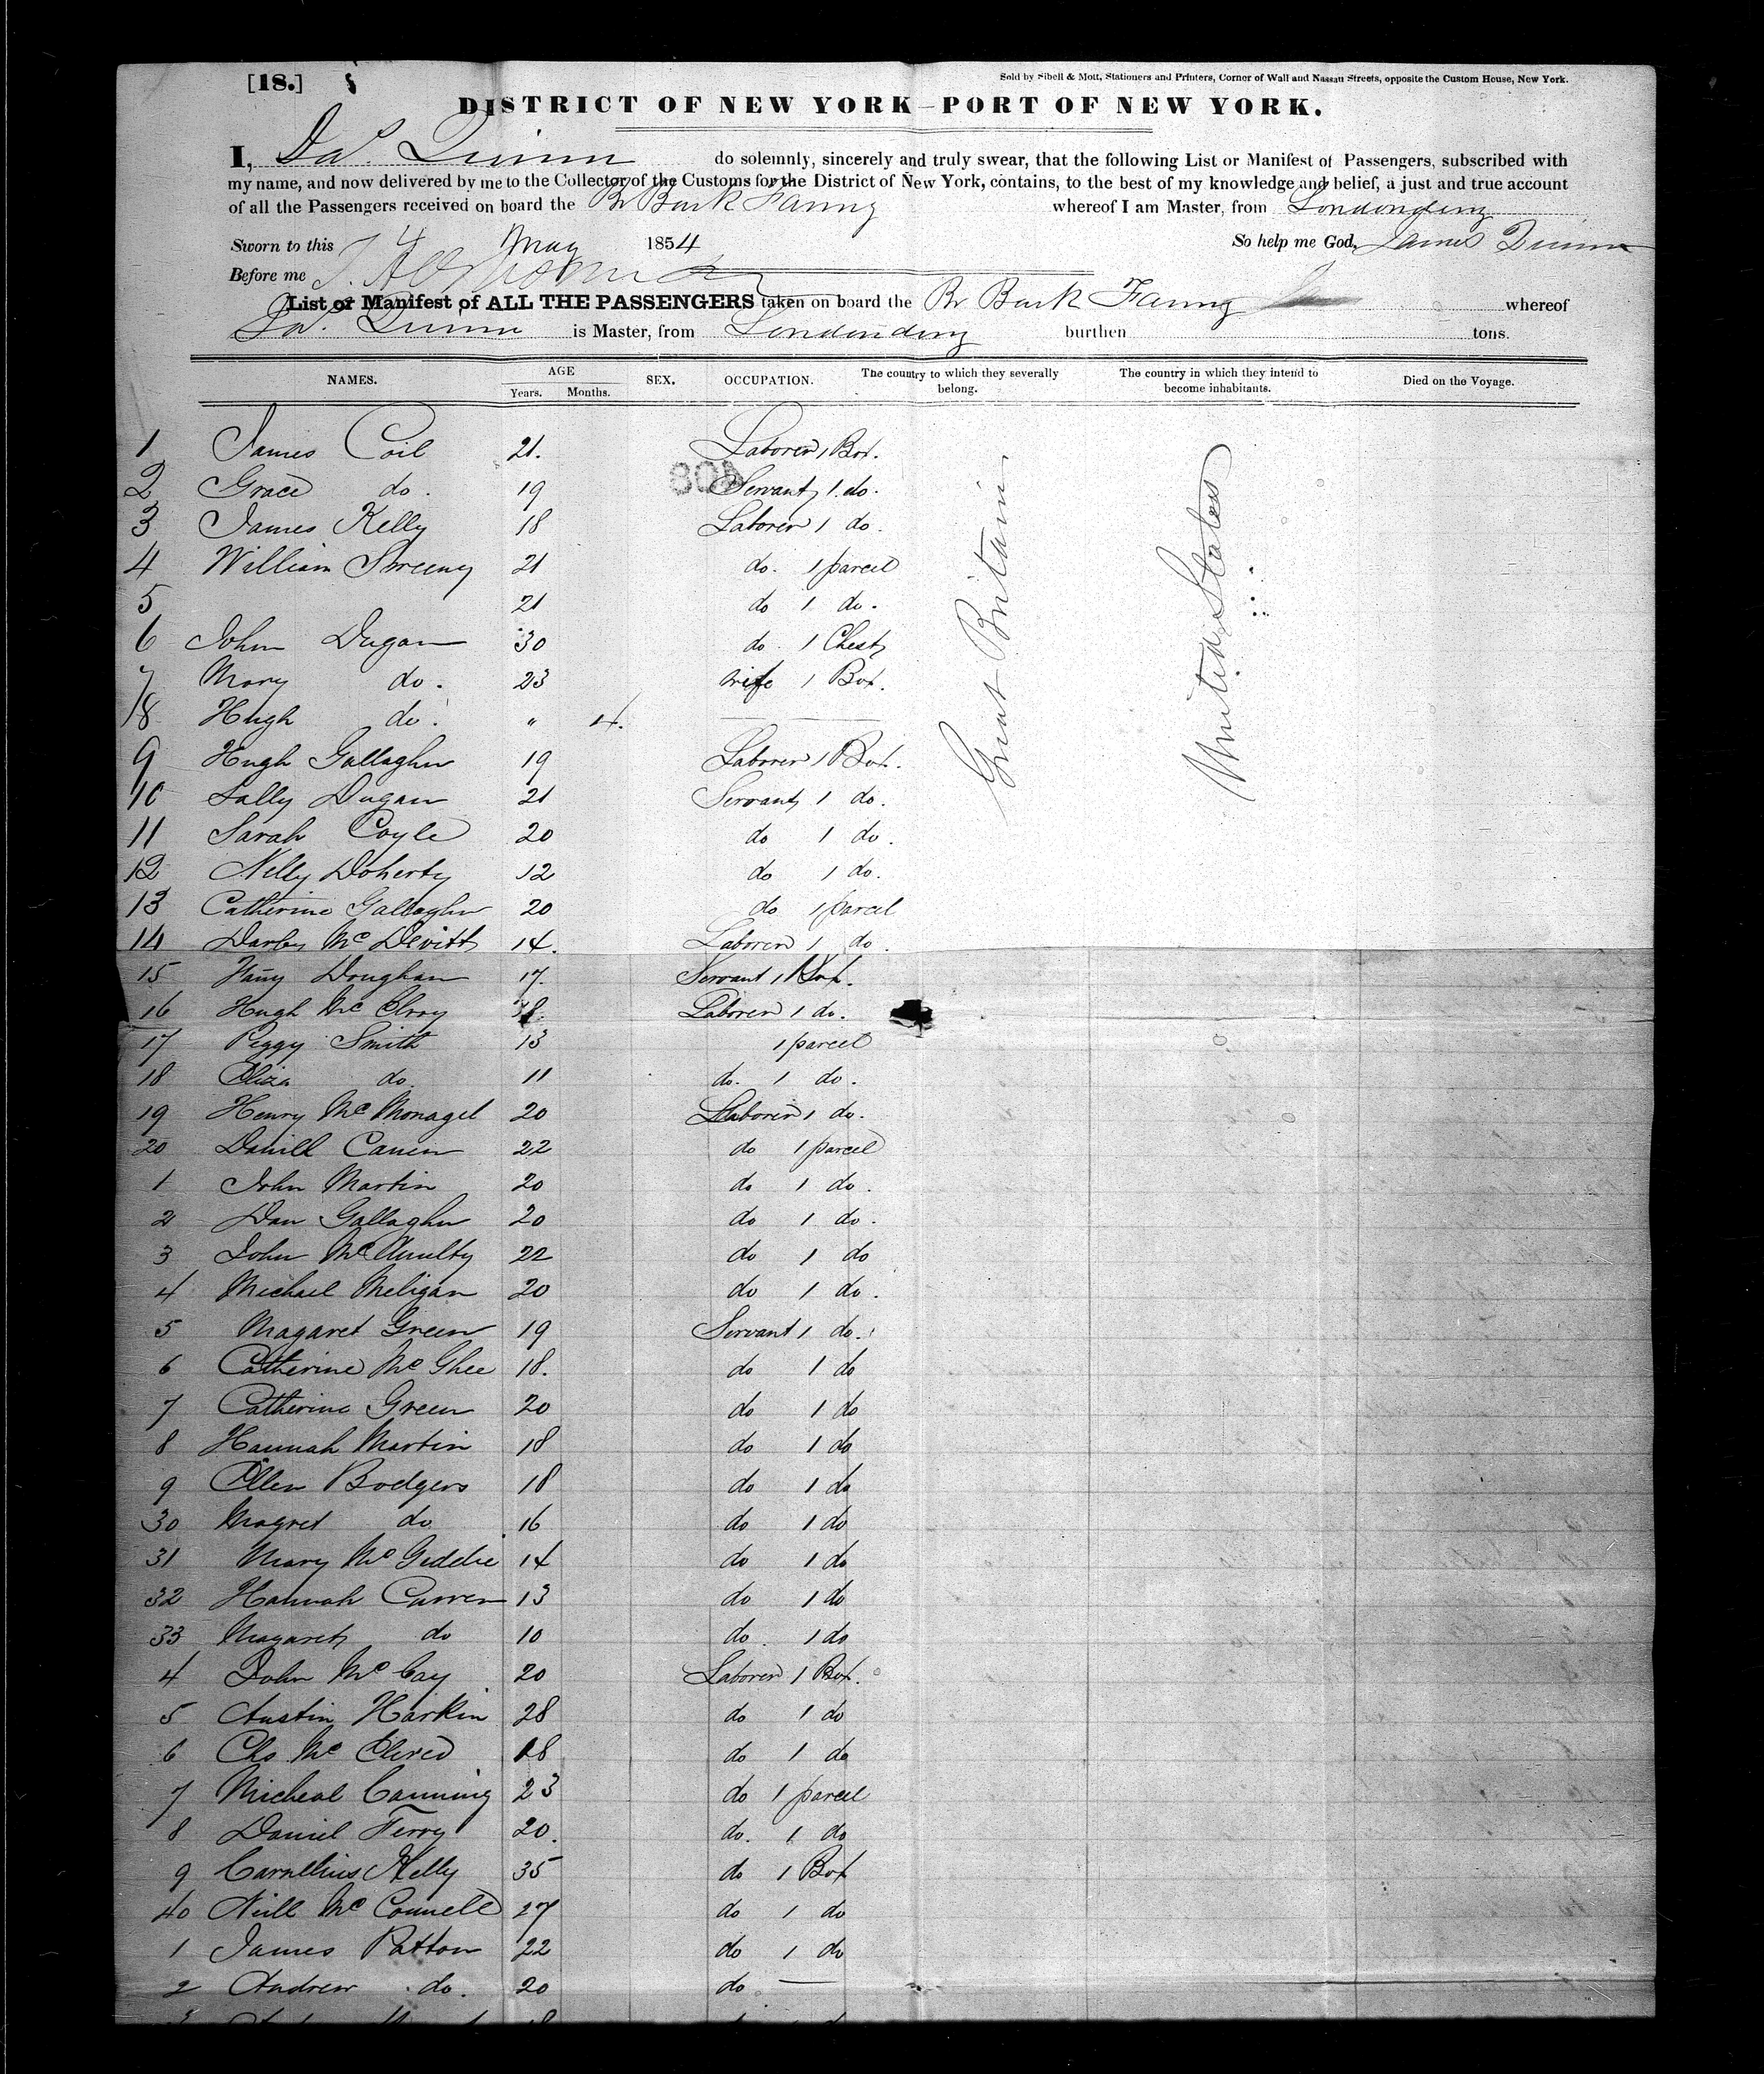 [18.]
Sold by Sibell & Mott, Stationers and Printers, Corner of Wall and Nassau Streets, opposite the Custom House, New York.
DISTRICT OF NEW YORK—PORT OF NEW YORK.
I, Jas. Quinn do solemnly, sincerely and truly swear, that the following List or Manifest of Passengers, subscribed with
my name, and now delivered by me to the Collector of the Customs for the District of New York, contains, to the best of my knowledge and belief, a just and true account
of all the Passengers received on board the Br Bark Fanny whereof I am Master, from Londonderry
Sworn to this 4 May 1854 So help me God, James Quinn
Before me
List or Manifest of ALL THE PASSENGERS taken on board the Br Bark Fanny whereof
Jas. Quinn is Master, from Londonderry burthen tons.
NAMES. AGE Years. Months. SEX. OCCUPATION. The country to which they severally belong. The country in which they intend to become inhabitants. Died on the Voyage.
Great Britain
United States
1 James Coil 21. Laborer 1 Box.
2 Grace do. 19 Servant 1 do.
3 James Kelly 18 Laborer 1 do.
4 William Sweeny 21 do. 1 parcel
5 21 do 1 do.
6 John Dugan 30 do. 1 Chest
7 Mary do. 23 wife 1 Box.
8 Hugh do. " 4.
9 Hugh Gallagher 19 Laborer 1 Box.
10 Sally Dugan 21 Servant 1 do.
11 Sarah Coyle 20 do 1 do.
12 Nelly Doherty 12 do 1 do.
13 Catherine Gallagher 20 do 1 parcel
14 Darby Mc Devitt 14. Laborer 1 do.
15 Fañy Doughan 17. Servant 1 Box.
16 Hugh Mc Elroy 38. Laborer 1 do.
17 Peggy Smith 13 1 parcel
18 Eliza do. 11 do. 1 do.
19 Henry Mc Monagel 20 Laborer 1 do.
20 Daniel 22 do 1 parcel
1 John Martin 20 do 1 do.
2 Dan Gallagher 20 do 1 do.
3 John Mc Anulty 22 do 1 do
4 Michael Meligan 20 do 1 do.
5 Magaret Green 19 Servant 1 do.
6 Catherine Mc Ghee 18. do 1 do
7 Catherine Green 20 do 1 do
8 Hannah Martin 18 do 1 do
9 Ellen Bodgers 18 do 1 do
30 Magret do 16 do 1 do
31 Mary Mc Geddie 14 do 1 do
32 Hannah Curren 13 do 1 do
33 Magaret do 10 do. 1 do
4 John Mc Cay 20 Laborer 1 Box.
5 Austin Harkin 28 do 1 do
6 Chs Mc 18 do 1 do
7 Micheal Canning 23 do 1 parcel
8 Daniel Ferry 20. do. 1 do
9 Carnellius Kelly 35 do 1 Box
40 Neill Mc Connell 27 do 1 do
1 James Patton 22 do 1 do
2 Andrew do. 20 do